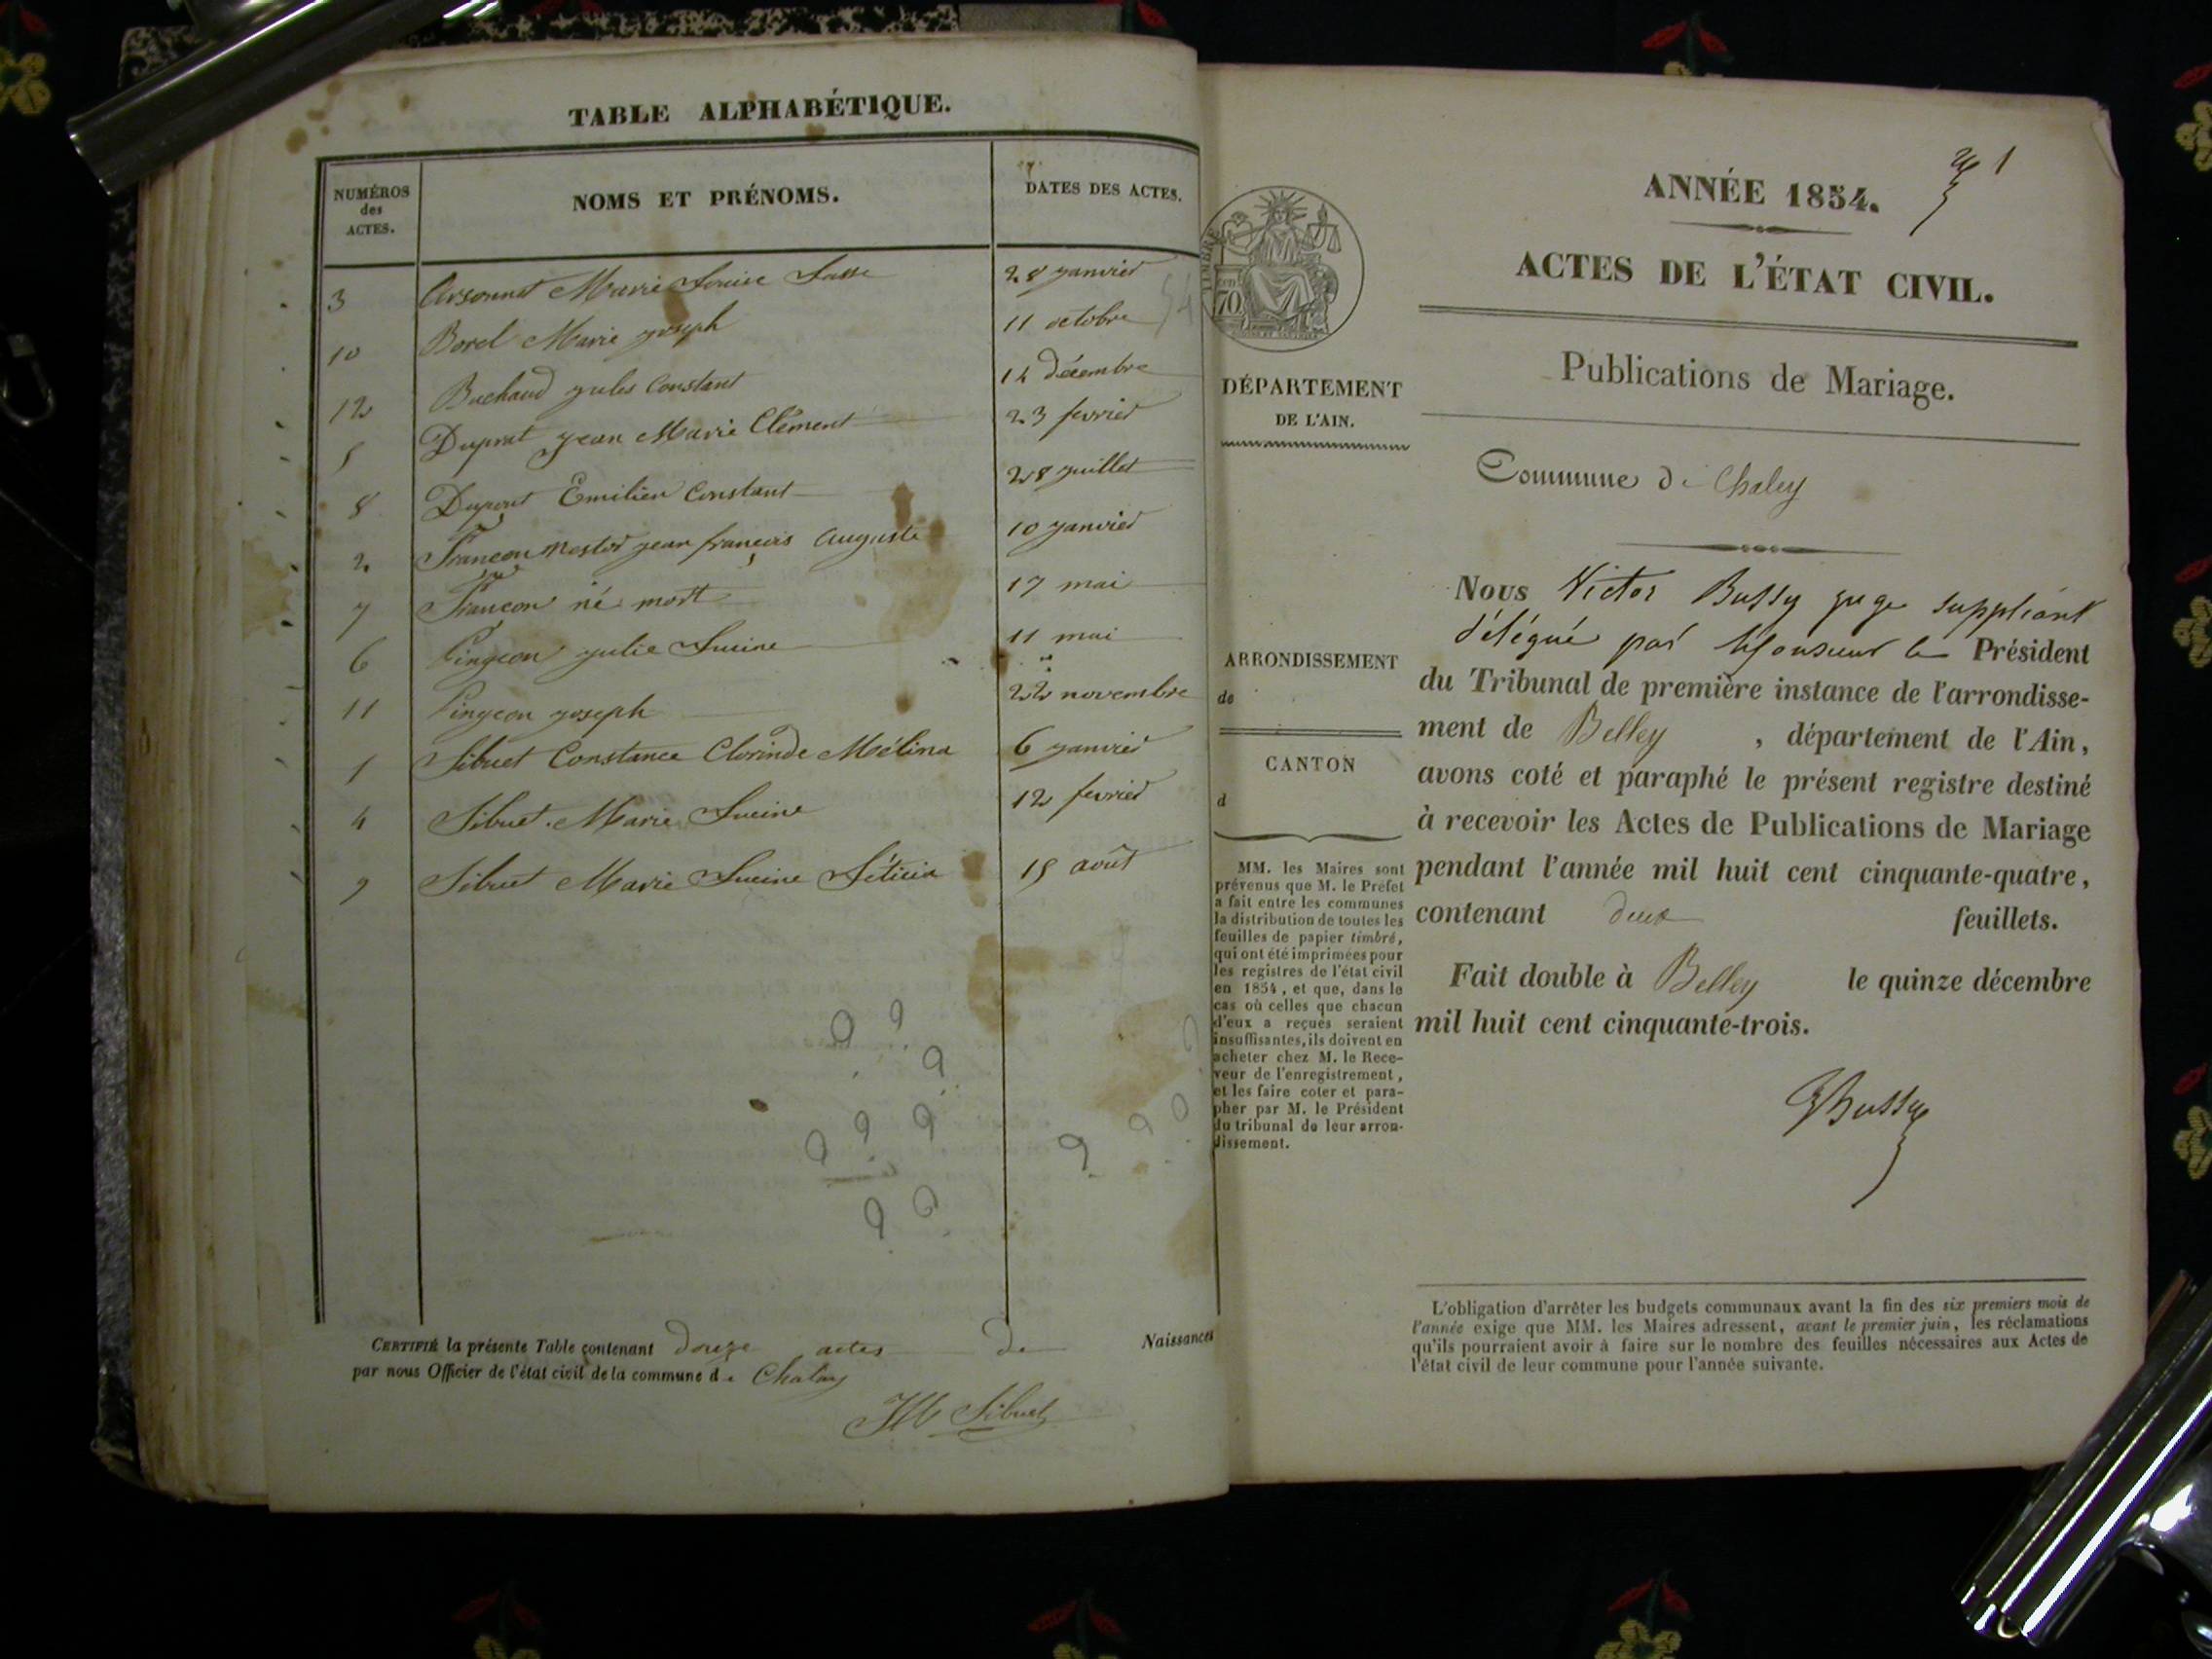 TABLE ALPHABÉTIQUE.
NUMÉROS des ACTES. NOMS ET PRÉNOMS. DATES DES ACTES.
3 Arsonnet Marie Louise 28 janvier
10 Borel Marie joseph 11 octobre
12 Buchaud jules Constant 14 décembre
5 Duprat jean Marie Clément 23 fevrier
8 Dupont Emilien Constant 28 juillet
2 Francon Nestor jean françois Auguste 10 janvier
7 Francon né mort 17 mai
6 Pingeon julie Lucine 11 mai
11 Pingeon joseph 22 novembre
1 Sibuet Constance Clorinde Mélina 6 janvier
4 Sibuet Marie Lucine 12 fevrier
9 Sibuet Marie Lucine Léticia 15 août
CERTIFIÉ la présente Table contenant douze actes de Naissances
par nous Officier de l'état civil de la commune de Chaley
Sibuet
1
ANNÉE 1854.
ACTES DE L'ÉTAT CIVIL.
Publications de Mariage.
TIMBRE
70
DÉPARTEMENT
DE L'AIN.
ARRONDISSEMENT
de
CANTON
d
MM. les Maires sont
prévenus que M. le Préfet
a fait entre les communes
la distribution de toutes les
feuilles de papier timbré,
qui ont été imprimées pour
les registres de l'état civil
en 1854, et que, dans le
cas où celles que chacun
d'eux a reçues seraient
insuffisantes, ils doivent en
acheter chez M. le Rece-
veur de l'enregistrement,
et les faire coter et para-
pher par M. le Président
du tribunal de leur arron-
dissement.
Commune de Chaley
Nous Victor Bussy juge suppléant
délégué par Monsieur le Président
du Tribunal de première instance de l'arrondisse-
ment de Belley , département de l'Ain,
avons coté et paraphé le présent registre destiné
à recevoir les Actes de Publications de Mariage
pendant l'année mil huit cent cinquante-quatre,
contenant deux feuillets.
Fait double à Belley le quinze décembre
mil huit cent cinquante-trois.
VBussy
L'obligation d'arrêter les budgets communaux avant la fin des six premiers mois de
l'année exige que MM. les Maires adressent, avant le premier juin, les réclamations
qu'ils pourraient avoir à faire sur le nombre des feuilles nécessaires aux Actes de
l'état civil de leur commune pour l'année suivante.